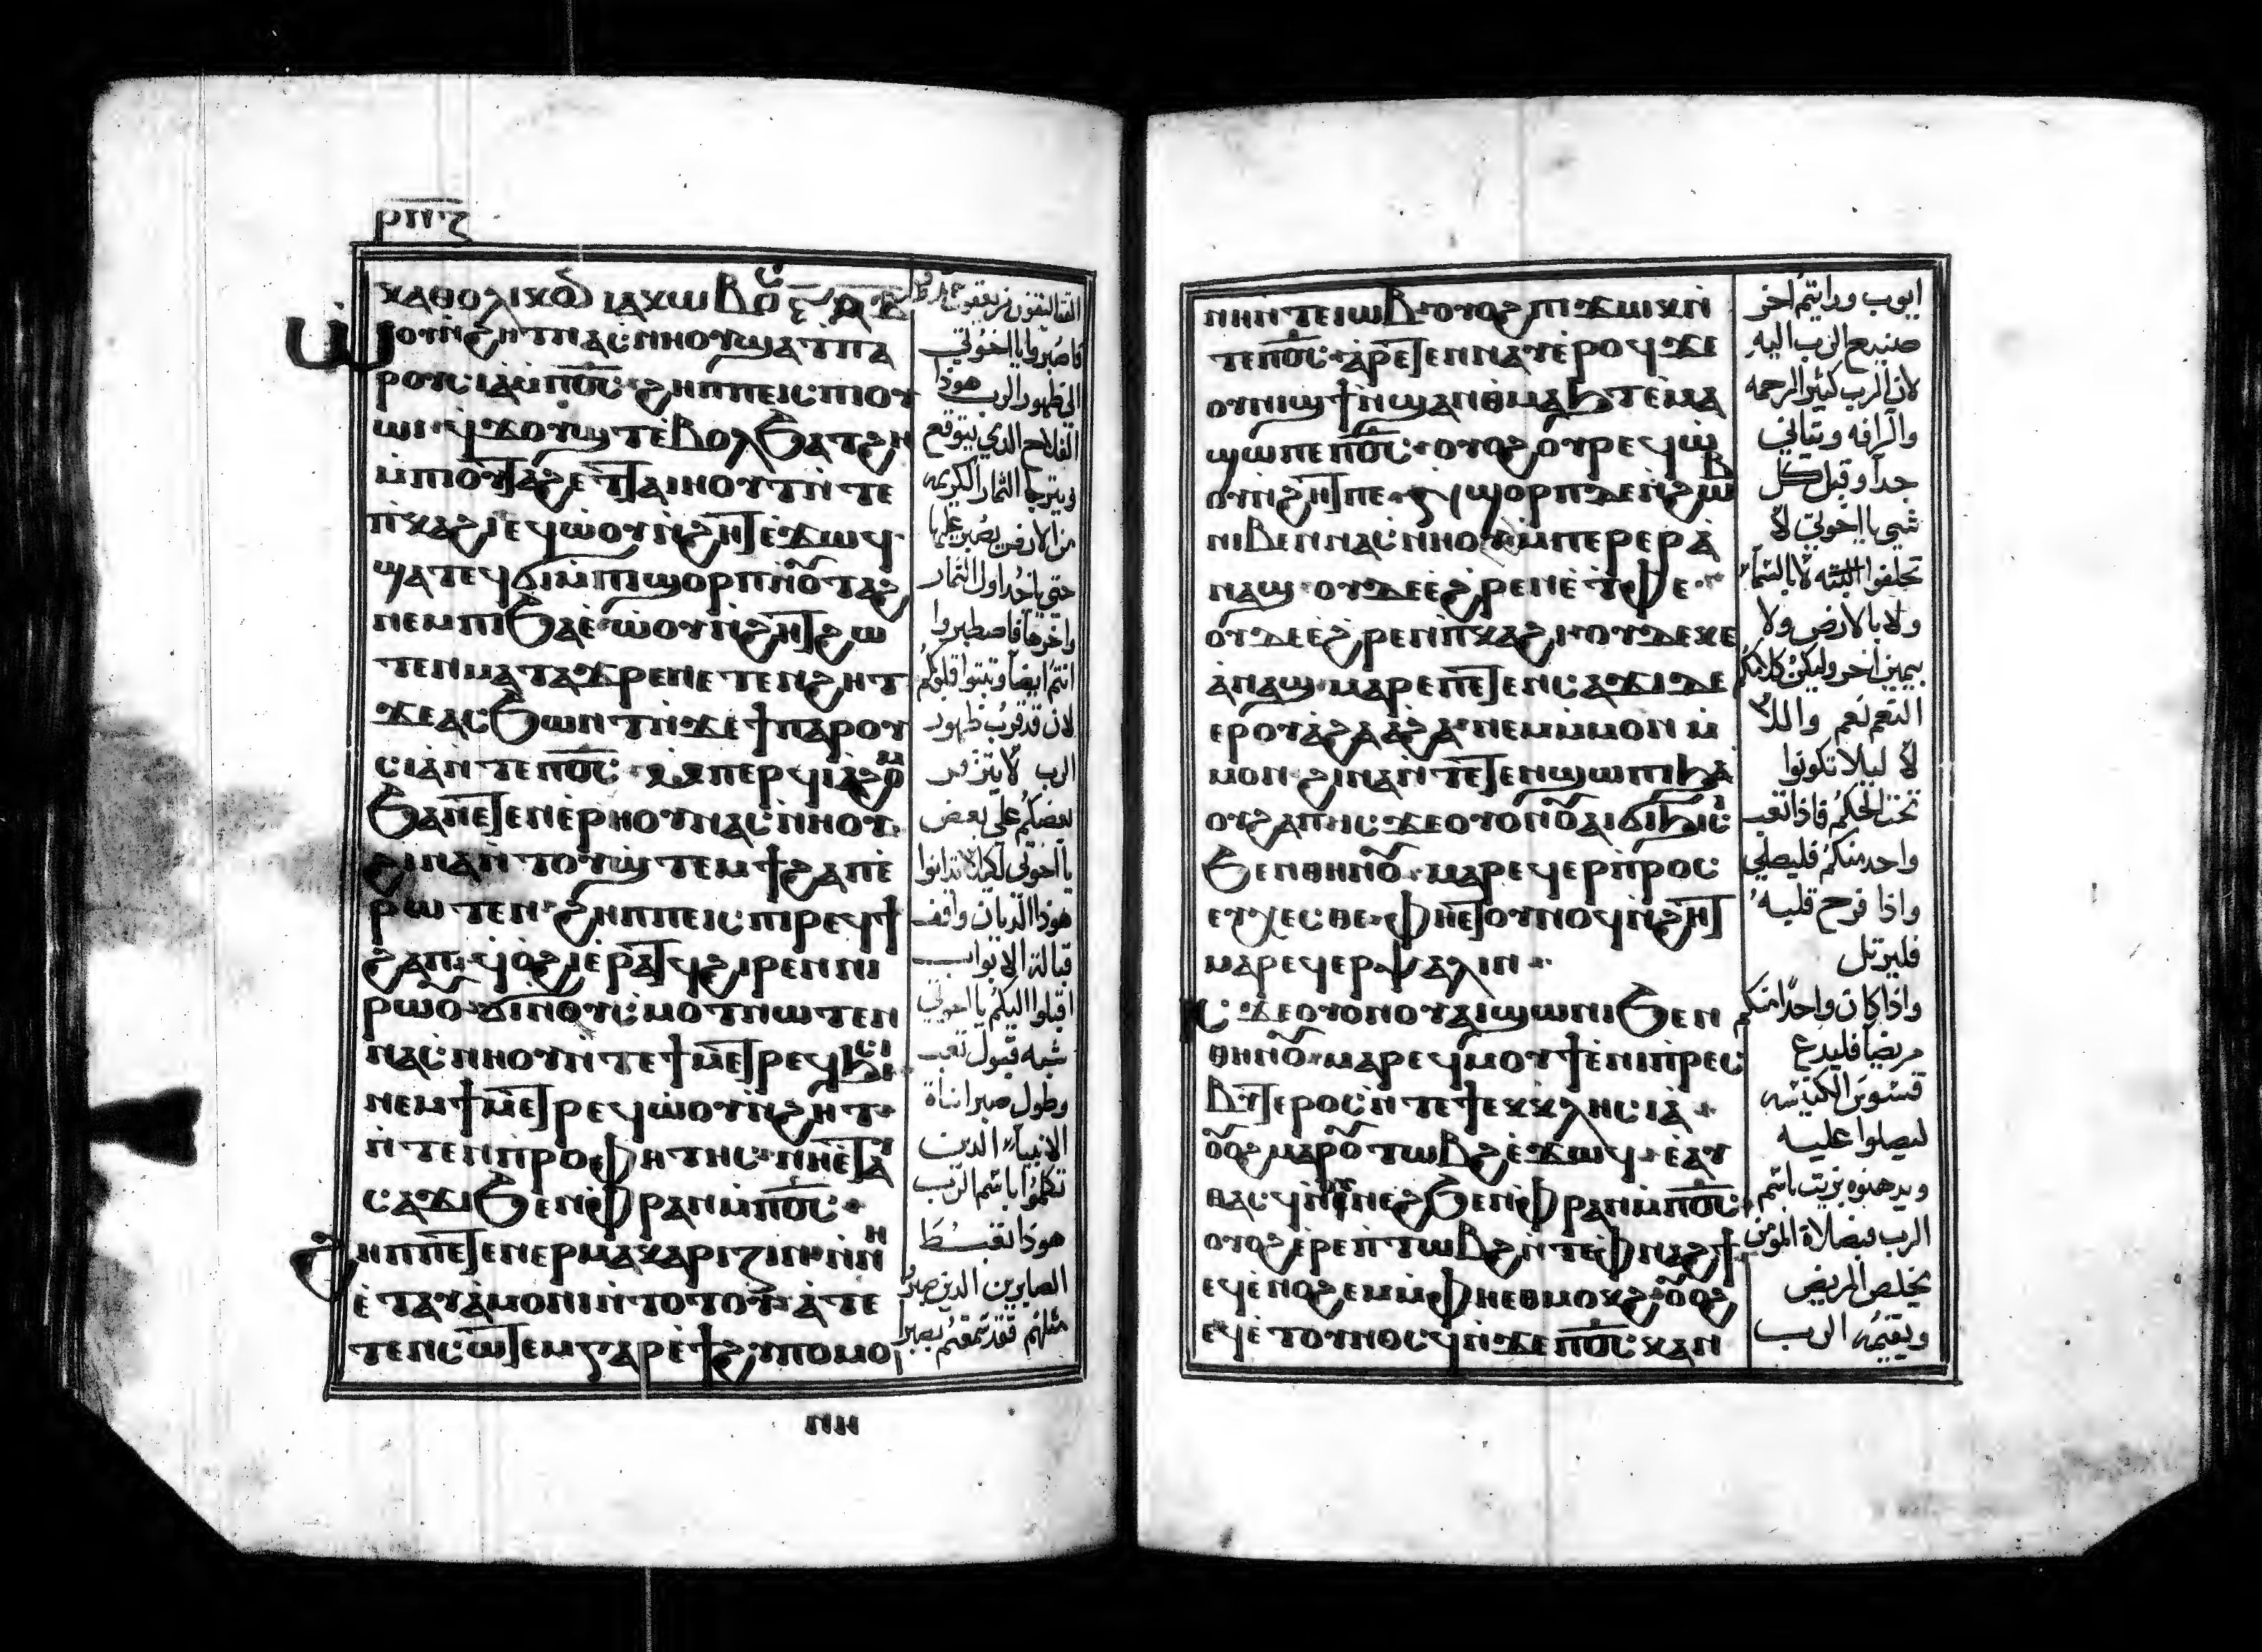 ⲣⲡⲋ
ⲕⲁⲑⲟⲗⲓⲕⲟ ⲓⲁⲕⲱⲃⲟⲥ
ⲱⲟⲩⲛ̀ϩⲏⲧ ⲛⲁⲥⲛⲏⲟⲩ ϣⲁϯⲡⲁ
ⲣⲟⲩⲥⲓⲁ ⲙ̀ⲡⲟ̅ⲥ̅ ϩⲏⲡⲡⲉ ⲓⲥ ⲡⲓⲟⲩ
ⲱⲓ ϥϫⲟⲩϣⲧ ⲉ̀ⲃⲟⲗ ϧⲁⲧϩⲏ
ⲙ̀ⲡⲓⲟⲩⲧⲁϩ ⲉⲧⲧⲁⲓⲏⲟⲩⲧ ⲛ̀ⲧⲉ
ⲡ̀ⲕⲁϩⲓ ⲉϥⲱ̀ⲟⲩ ⲛ̀ϩⲏⲧ ⲉ̀ϫⲱϥ
ϣⲁⲧⲉϥϭⲓ ⲙ̀ⲡⲓϣⲟⲣⲡ ⲛ̀ⲟⲩⲧⲁϩ
ⲛⲉⲙ ⲡⲓϧⲁⲉ̀ ⲱ̀ⲟⲩ ⲛ̀ϩⲏⲧ ϩⲱ
ⲧⲉⲛ ⲙⲁⲧⲁϫⲣⲉ ⲛⲉⲧⲉⲛϩⲏⲧ
ϫⲉ ⲁⲥϧⲱⲛⲧ ⲛ̀ϫⲉ ϯⲡⲁⲣⲟⲩ
ⲥⲓⲁ ⲛ̀ⲧⲉ ⲡⲟ̅ⲥ̅ ⲙⲡⲉⲣϥⲓⲁ̀ϩⲟⲙ
ϧⲁ ⲛⲉⲧⲉⲛⲉ̀ⲣⲏⲟⲩ ⲛⲁⲥⲛⲏⲟⲩ
ϩⲓⲛⲁ ⲛ̀ⲧⲟⲩϣ̀ⲧⲉⲙϯϩⲁⲡ ⲉ̀
ⲣⲱⲧⲉⲛ ϩⲏⲡⲡⲉ ⲓⲥ ⲡⲓⲣⲉϥϯ
ϩⲁⲡ ϥⲟ̀ϩⲓ ⲉ̀ⲣⲁⲧϥ ϩⲓⲣⲉⲛ ⲛⲓ
ⲣⲱⲟⲩ ϭⲓ ⲛⲟⲩⲥⲙⲟⲧ ⲛⲱⲧⲉⲛ
ⲛⲁⲥⲛⲏⲟⲩ ⲛ̀ⲧⲉ ϯⲙⲉⲧⲣⲉϥϭⲓϧⲓⲥⲓ
ⲛⲉⲙ ϯⲙⲉⲧⲣⲉϥⲱ̀ⲟⲩ ⲛ̀ϩⲏⲧ
ⲛ̀ⲧⲉ ⲛⲓⲡⲣⲟⲫⲏⲧⲏⲥ ⲛⲏⲉⲧⲁⲩ
ⲥⲁϫⲓ ϧⲉⲛ ⲫⲣⲁⲛ ⲙ̀ⲡⲟ̅ⲥ̅
ϩⲏⲡⲡⲉ ⲧⲉⲛⲉⲣⲙⲁⲕⲁⲣⲓⲍⲓⲛ ⲛ̀ⲛⲏ
ⲉ̀ⲧⲁⲩⲁ̀ⲙⲟⲛⲓ ⲛ̀ⲧⲟⲧⲟⲩ ⲁ̀ⲧⲉ
ⲧⲉⲛⲥⲱⲧⲉⲙ ⲅⲁⲣ ⲉ̀ϯϩⲩⲡⲟⲙⲟ
ⲛⲏ
فاصبروا يا اخوتي
الي ظهور الرب هوذا
الفلاح الذي يتوقع
ويترجا الثمار الكريمه
من الارض يصبر عليها
حتي ياخد اول الثمار
واخرها فاصطبروا
انتم ايضا وثبتوا قلوبكم
لان قد قرب ظهور
الرب لا يتزمر
بعضكم علي بعض
يا اخوتي لكيلا تدانوا
هوذا الديان واقف
قبالة الابواب
اقبلوا اليكم يا اخوتي
شبه قبول تعب
وطول صبر اناة
الانبياء الدين
تكلموا باسم الرب
هوذا نغبط
الصابرين الدين صبر
مثلهم فقد سمعتم بصبر
ⲛⲏ ⲛ̀ⲧⲉ ⲓⲱⲃ ⲟⲩⲟϩ ⲡⲓϫⲱⲕ ⲛ̀
ⲧⲉ ⲡⲟ̅ⲥ̅ ⲁ̀ⲣⲉⲧⲉⲛⲛⲁⲩ ⲉ̀ⲣⲟϥ ϫⲉ
ⲟⲩⲛⲓϣϯ ⲛ̀ϣⲁⲛⲑⲙⲁϧⲧ ⲉ̀ⲙⲁ
ϣⲱ ⲡⲉ ⲡⲟ̅ⲥ̅ ⲟⲩⲟϩ ⲟⲩⲣⲉϥⲱ̀
ⲟⲩ ⲛ̀ϩⲏⲧ ⲡⲉ ϣⲟⲣⲡ ⲇⲉ ⲛ̀ϩⲱⲃ
ⲛⲓⲃⲉⲛ ⲛⲁⲥⲛⲏⲟⲩ ⲙ̀ⲡⲉⲣⲉⲣⲁ̀
ⲛⲁϣ ⲟⲩⲇⲉ ⲉ̀ϩⲣⲉⲛ ⲉ̀ⲧⲫⲉ
ⲟⲩⲇⲉ ⲉ̀ϩⲣⲉⲛ ⲡ̀ⲕⲁϩⲓ ⲟⲩⲇⲉ ⲕⲉ
ⲁ̀ⲛⲁϣ ⲙⲁⲣⲉ ⲡⲉⲧⲉⲛⲥⲁϫⲓ ⲇⲉ
ⲉⲣ ⲟⲩⲁ̀ϩⲁ ⲁ̀ϩⲁ ⲛⲉⲙ ⲙ̀ⲙⲟⲛ ⲙ̀
ⲙⲟⲛ ϩⲓⲛⲁ ⲛ̀ⲧⲉⲧⲉⲛϣⲱⲡⲓ ϧⲁ
ⲟⲩϩⲁⲡ ⲓⲥϫⲉ ⲟⲩⲟⲛ ⲟⲩⲁⲓ ϭⲓϧⲓⲥⲓ
ϧⲉⲛ ⲑⲏⲛⲟⲩ ⲙⲁⲣⲉϥⲉⲣⲡ̀ⲣⲟⲥ
ⲉⲩⲭⲉⲥⲑⲉ ⲫⲏⲉⲧⲟⲩⲛⲟϥ ⲛ̀ϩⲏⲧ
ⲙⲁⲣⲉϥⲉⲣⲯⲁⲗⲓⲛ
ⲓⲥϫⲉ ⲟⲩⲟⲛ ⲟⲩⲁⲓ ϣⲱⲛⲓ ϧⲉⲛ
ⲑⲏⲛⲟⲩ ⲙⲁⲣⲉϥⲙⲟⲩϯ ⲉ̀ⲛⲓⲡ̀ⲣⲉⲥ
ⲃⲩⲧⲉⲣⲟⲥ ⲛ̀ⲧⲉ ϯⲉⲕⲕⲗⲏⲥⲓⲁ
ⲟⲩⲟϩ ⲙⲁⲣⲟⲩⲧⲱⲃϩ ⲉ̀ϫⲱϥ ⲉ̀ⲁⲩ
ⲑⲁϩⲥϥ ⲛ̀ⲛⲉϩ ϧⲉⲛ ⲫⲣⲁⲛ ⲙ̀ⲡⲟ̅ⲥ̅
ⲟⲩⲟϩ ⲉ̀ⲣⲉ ⲡ̀ⲧⲱⲃϩ ⲛ̀ⲧⲉ ⲫ̀ⲛⲁϩϯ
ⲉϥⲉ̀ⲛⲟϩⲉⲙ ⲙ̀ⲫⲏⲉⲑⲙⲟⲕϩ ⲟⲩⲟϩ
ⲉϥⲉ̀ⲧⲟⲩⲛⲟⲥϥ ⲛ̀ϫⲉ ⲡⲟ̅ⲥ̅ ⲕⲁⲛ
ايوب ورايتم اخر
صنيع الرب اليه
لان الرب كثير الرحمه
والرافه ويتاني
جدا وقبل كل
شي يا اخوتي لا
تحلفوا البته لا بالسماء
ولا بالارض ولا
بيمين اخر وليكن كلامكم
النعم نعم واللا
لا ليلا تكونوا
تحت الحكم فاذا تعب
واحد منكم فليصلي
واذا فرح قلبه
فليرتل
واذا كان واحدا منكم
مريضا فليدع
قسوس الكنيسه
ليصلوا عليه
ويدهنوه بزيت باسم
الرب فبصلاة المومن
يخلص المريض
ويقيمه الرب